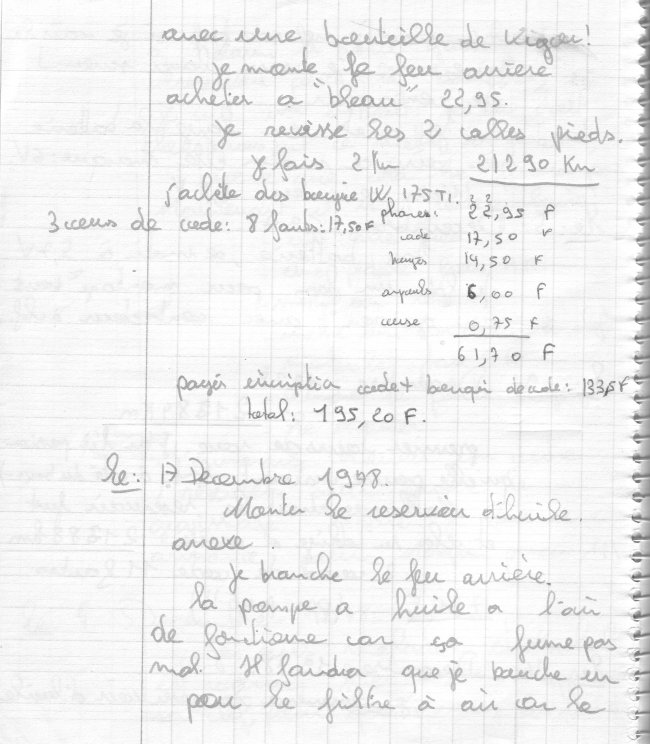 avec une bouteille de Vigor!
je monte le feu arriere
acheter a "bleau" 22,95.
je revisse les 2 calles pieds.
je fais 2 Km 21290 Km
j'achète des bougie W 175T1.
3 cours de code: 8 fauts: 17,50 F
phares: 22,95 F
code 17,50 F
bougies 14,50 F
6,00 F
0,75 F
61,70 F
payer code + de code: 133,5 F
total: 195,20 F.
Le: 17 Decembre 1978.
Monter le reservoir d'huile
anexe.
je branche le feu arrière.
la pompe a huile a l'air
de fontione car ça fume pas
mal. Il faudra que je bouche un
peu le filtre à air car le